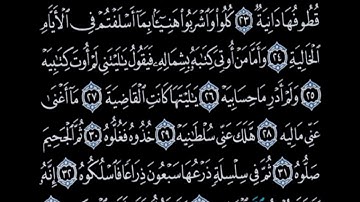 قُطُوفُهَا دَانِيَةٌ ﴿٢٣﴾ كُلُوا۟ وَٱشْرَبُوا۟ هَنِيٓـًٔۢا بِمَآ أَسْلَفْتُمْ فِى ٱلْأَيَّامِ
ٱلْخَالِيَةِ ﴿٢٤﴾ وَأَمَّا مَنْ أُوتِىَ كِتَٰبَهُۥ بِشِمَالِهِۦ فَيَقُولُ يَٰلَيْتَنِى لَمْ أُوتَ كِتَٰبِيَهْ
﴿٢٥﴾ وَلَمْ أَدْرِ مَا حِسَابِيَهْ ﴿٢٦﴾ يَٰلَيْتَهَا كَانَتِ ٱلْقَاضِيَةَ ﴿٢٧﴾ مَآ أَغْنَىٰ
عَنِّى مَالِيَهْ ﴿٢٨﴾ هَلَكَ عَنِّى سُلْطَٰنِيَهْ ﴿٢٩﴾ خُذُوهُ فَغُلُّوهُ ﴿٣٠﴾ ثُمَّ ٱلْجَحِيمَ
صَلُّوهُ ﴿٣١﴾ ثُمَّ فِى سِلْسِلَةٍ ذَرْعُهَا سَبْعُونَ ذِرَاعًا فَٱسْلُكُوهُ ﴿٣٢﴾ إِنَّهُۥ